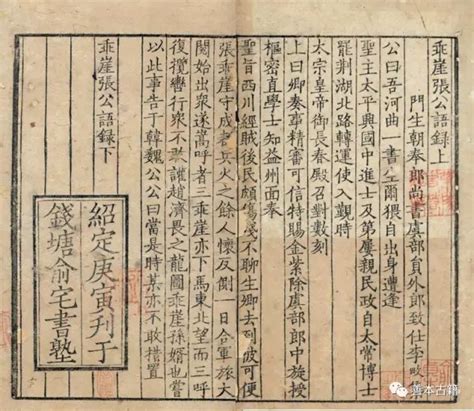 乖崖張公語錄上
門生朝奉郎尚書虞部員外郎致仕李畋
公曰吾河曲一書生爾猥自出身遭逢
聖主太平興國中進士及第屢親民政自太常博士
罷荊湖北路轉運使入觀時
太宗皇帝御長春殿召對數刻
上曰卿奏事精審可信特賜金紫除虞部郎中旋授
樞密直學士知益州面奉
聖旨西川經賊後民頗傷殘不聊生卿去到彼可便
張乖崖守成都兵火之餘人懷反側一日合軍旅大
閱始出衆遂嵩呼者三乖崖亦下馬東北望而三呼
復攬轡行衆不敢讙趙濟畏之龍圖乖崖孫婿也嘗
以此事告于韓魏公公曰當是時某亦不敢措置
乖崖張公語錄下
紹定庚寅刊于
錢塘俞宅書塾
善本古籍